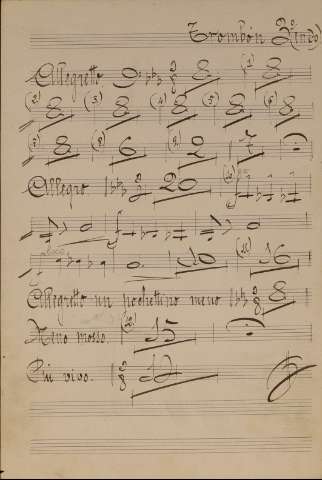 Trombón 2º
Allegretto 8 (1) 8
(2) 8 (3) 8 (4) 8 (5) 8 (6) 8
(7) 8 (8) 6 (9) 2 7
Allegro. 2 20
10 (11) 16
Allegretto un pochettino meno 8
Meno mosso (12) 15
Più vivo. 12